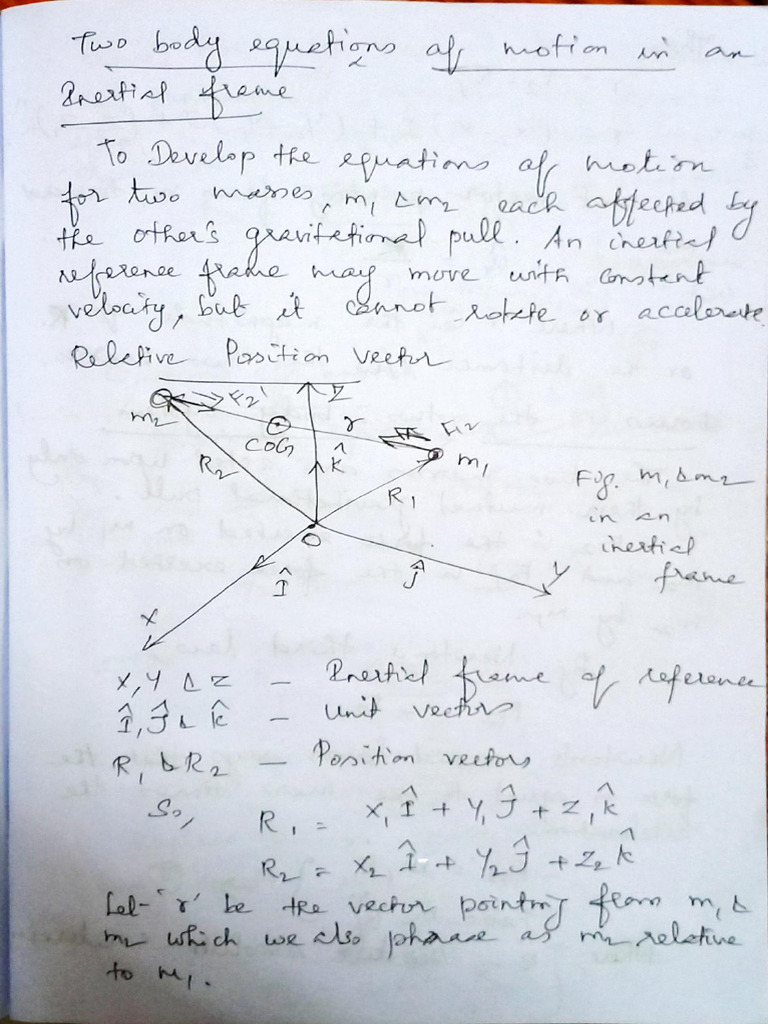 Two body equations of motion in an
Inertial frame
To Develop the equations of motion
for two masses, m₁ & m₂ each affected by
the other's gravitational pull. An inertial
reference frame may move with constant
velocity, but it cannot rotate or accelerate.
Relative Position vector
Z
F₂₁
m₂
r
F₁₂
COG
m₁
R₂
k̂
R₁
Fig. m₁ & m₂
in an
inertial
frame
O
Î
Ĵ
Y
X
X, Y & Z – Inertial frame of reference
Î, Ĵ & k̂ – Unit vectors
R₁ & R₂ – Position vectors
So,
R₁ = X₁ Î + Y₁ Ĵ + Z₁ k̂
R₂ = X₂ Î + Y₂ Ĵ + Z₂ k̂
Let 'r' be the vector pointing from m₁ &
m₂ which we also phrase as m₂ relative
to m₁.